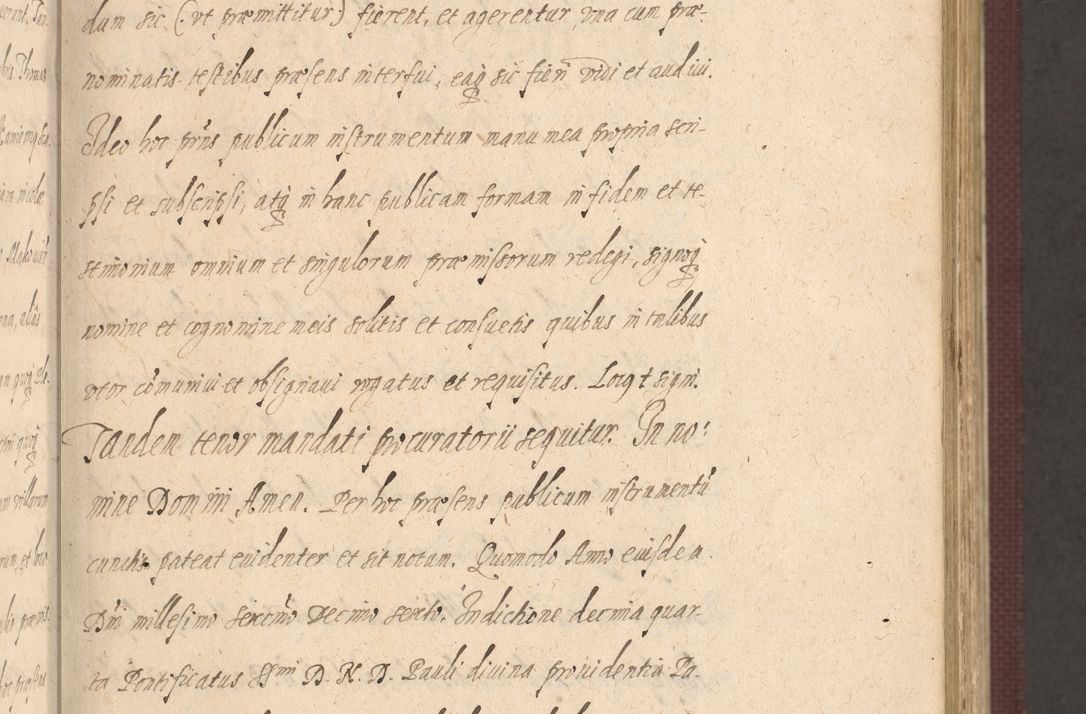 dum sic (: vt præmittitur :) fierent, et agerentur vna cum præ-
nominatis testibus præsens interfui, eaq̃ sic fieri vidi et audiui.
Ideo hoc prñs publicum instrumentum manu mea propria scri-
psi et subscripsi, atq̃ in hanc publicam formam in fidem et te-
stimonium omnium et singulorum præmissorum redegi, signoq̃
nomine et cognomine meis solitis et consuetis quibus in talibus
vtor cõmuniui et obsignaui rogatus et requisitus. Locq t signi.
Tandem tenor mandati procuratorii sequitur. In no:
mine Domini Amen. Per hoc præsens publicum instrumentũ
cunctis pateat euidenter et sit notum. Quomodo Anno eiusdem
Dñi millesimo sexcñto Decimo sexto. Indictione decima quar
ta Pontificatus Smi D. N. D. Pauli diuina prouidentia Pa-